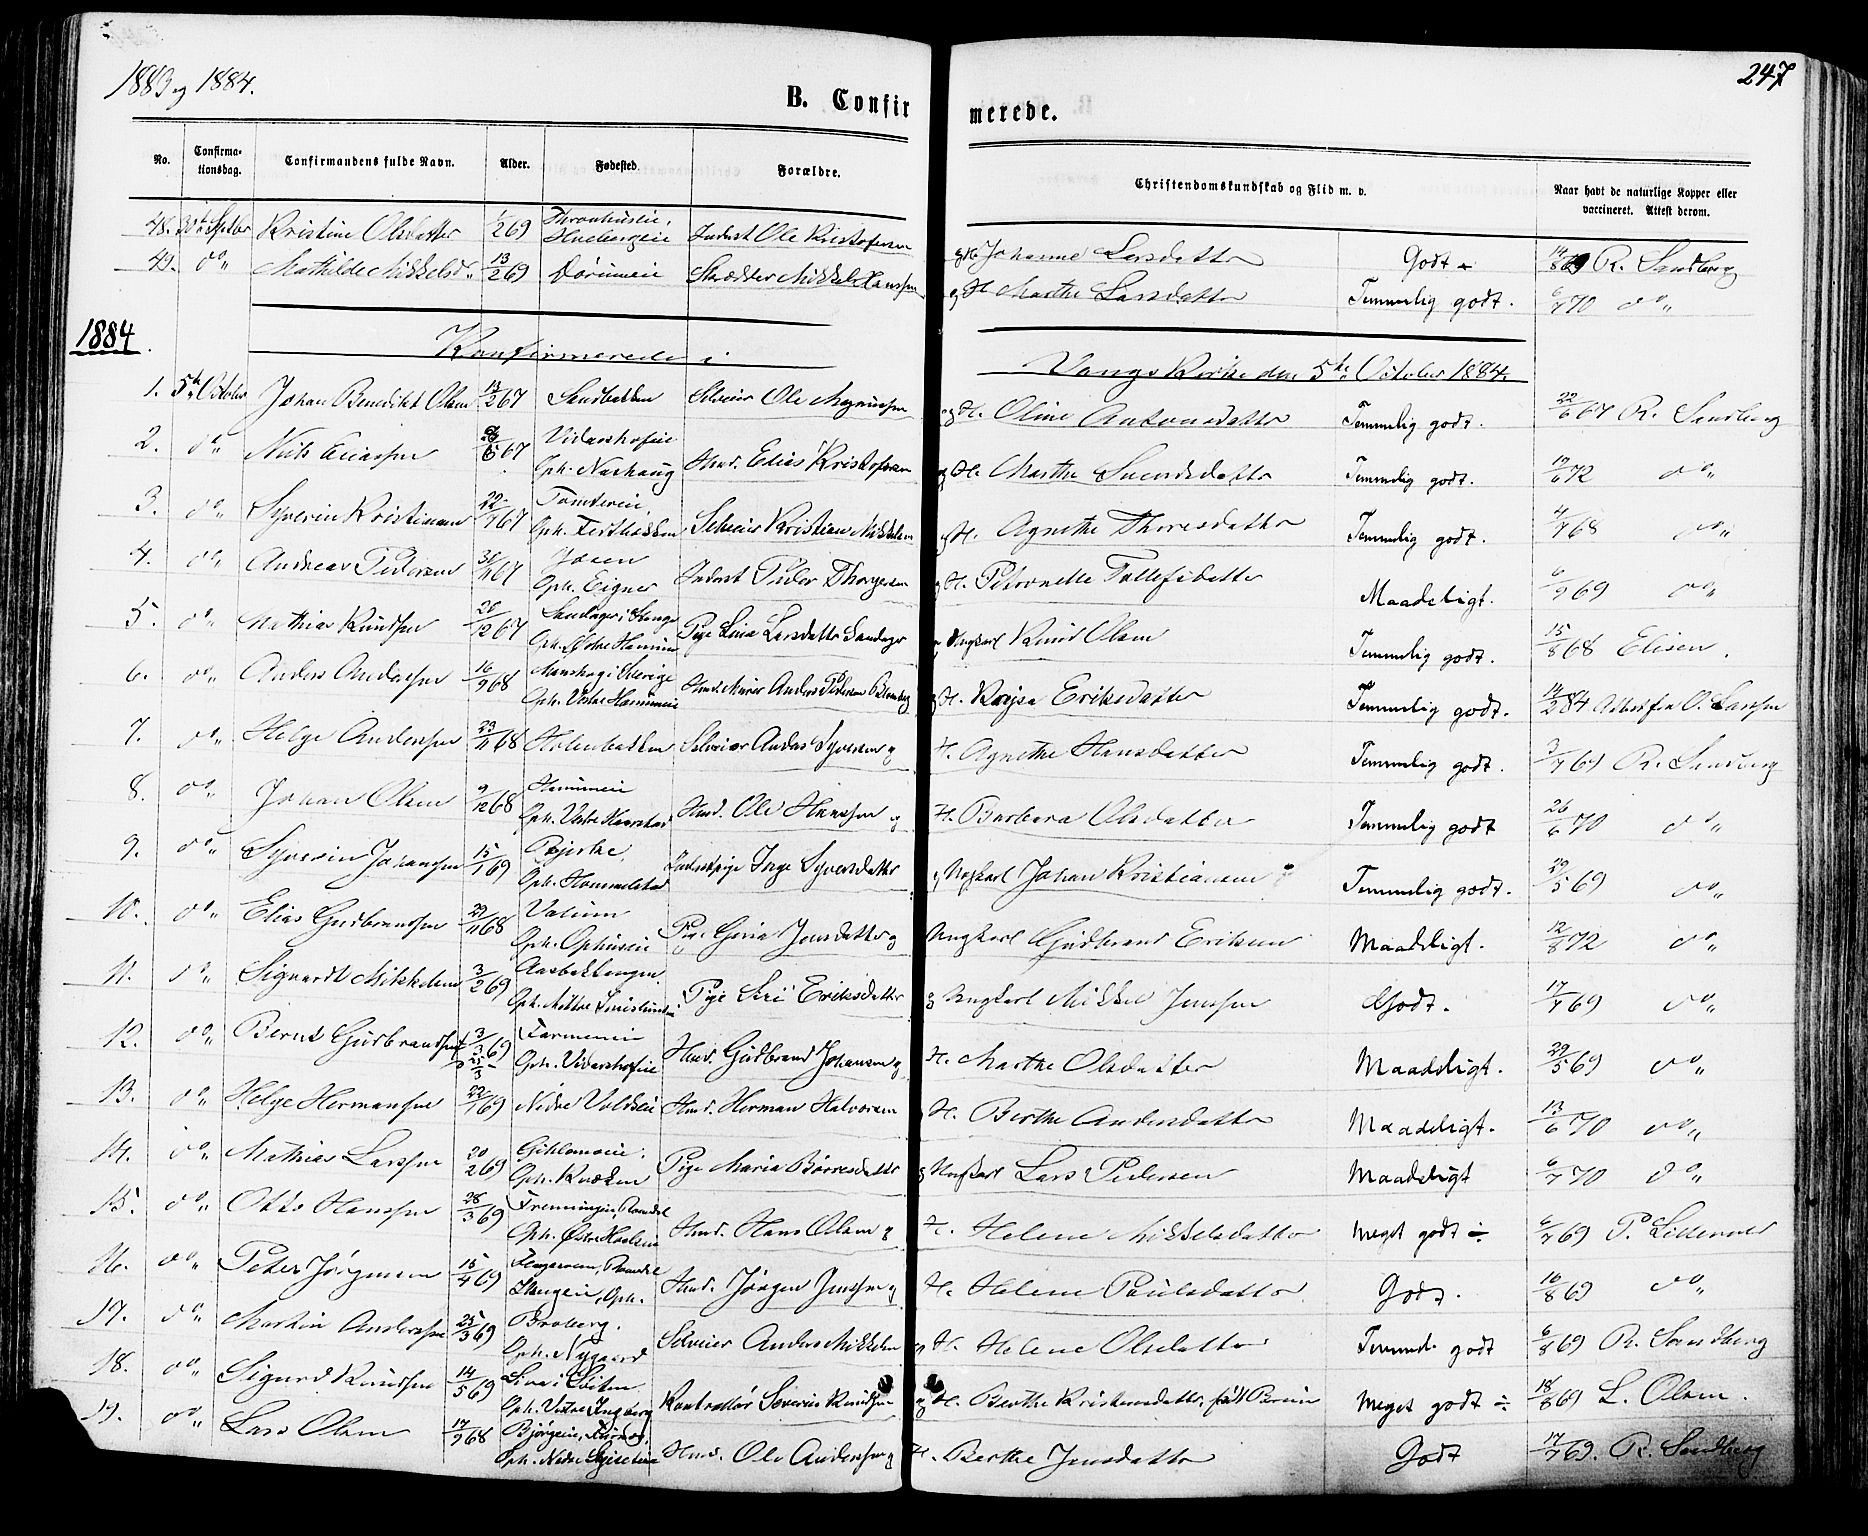 1883 og 1884.
247
B. Confirmerede.
No. Confirmationsdag. Confirmandens fulde Navn. Alder. Fødested. Forældre. Christendomskundskab og Flid m. v. Naar havt de naturlige Kopper eller vaccineret. Attest derom.
48. 30te Septbr Kristine Olsdatter 1/2 69 Indst Ole Kristofersen og H. Johanne Larsdatter Godt ÷ 14/8 69 R. Sandberg
49. do„ Mathilde Mikkelsd„ 13/2 69 Skrædder Mikkel Hanssen og H. Marthe Larsdatter Temmelig godt. 6/7 70 do„
1884.
Konfirmerede i Vangs Kirke den 5te October 1884.
1. 5te October Johan Benedikt Olsen 13/2 67 Sandbakken Selveier Ole Magnussen og H. Oline Antonsdatter Temmelig godt. 22/6 67 R. Sandberg
2. do„ Nils Eliassen 67 Vidarshofeie Oph. Narhaug Hmd. Elias Kristofersen og H. Marthe Svendsdatter Temmelig godt. 19/6 72 do„
3. do„ Syverin Kristiansen 22/7 67 Tomtereie Selveier Kristian Mikkelsen og H. Agnethe Thoresdatter Temmelig godt. 4/7 68 do„
4. do„ Andreas Pedersen 67 Josen Oph. Eigner Indst Peder Thorgersen og H. Petronelle Tollefsdatter Maadeligt. 6/9 69 do„
5. do„ Mathias Knudsen 20/12 67 Sandager i Stange Oph. Østre Hammer Pige Lina Larsdatter Sandager og Ungkarl Knud Olsen Temmelig godt. 15/8 68 Elisen.
6. do„ Anders Andersen 16/9 68 Manskog i Sverige Oph. Vestre Hammereie Hmd. Murer Anders Pedersen og H. Kajsa Eriksdatter Temmelig godt. 14/2 84 O. Larssen
7. do„ Helge Anderssen 23/11 68 Holenbakken Selveier Anders Syversen og H. Agnethe Hansdatter Temmelig godt. 3/7 69 R. Sandberg
8. do„ Johan Olsen 9/12 68 Hammereie Oph. Vestre Kaarstad Hmd. Ole Hanssen og H. Barbara Olsdatter Temmelig godt 26/6 70 do„
9. do„ Syverin Johanssen 15/1 69 Bjerke. Oph. Hommelstad Indstpige Inge Syversdatter og Ungkarl Johan Kristiansen Temmelig godt. 29/5 69 do„
10. do„ Elias Gudbrandsen 29/11 68 Valum Oph. Ophuseie Pige Goria Jensdatter og Ungkarl Gudbrand Eriksen Maadeligt. 12/8 72 do„
11. do„ Siguardt Mikkelsen 3/2 69 Aasbakkengen Pige Siri Eriksdatter og Ungkarl Mikkel Jenssen Godt. 17/7 69 do„
12. do„ Bernt Gudbrandsen f 3/3 69 D 25/3 Farmeneie Oph. Vidarshofeie Hmd. Gudbrand Johansen og H. Marthe Olsdatter Maadeligt. 29/5 69 do„
13. do„ Helge Hermansen 22/1 69 Nedre Voldseie Hmd. Herman Halvorsen H. Berthe Andersdatter Maadeligt. 13/6 70 do„
14. do„ Mathias Larssen 20/2 69 Gihlameie. Oph. Kvæken Pige Maria Børresdatter og Ungkarl Lars Pedersen Maadeligt 6/7 70 do„
15. do„ Otto Hanssen 28/3 69 Fremmingeie, Romedal Oph. Østre Hoelseie Hmd. Hans Olsen og H. Helene Mikkelsdatter Meget godt ÷ 6/7 69 P. Lillevold
16. do„ Peter Jørgensen 15/4 69 Romedal Hmd. Jørgen Jenssen og H. Helene Paulsdatter Godt. 16/8 69 do„
17. do„ Martin Anderssen 25/3 69 Broberg. Oph. Nygaard Selveier Anders Mikkelsen og H. Helene Olsdatter Temmel. godt 6/8 69 R. Sandberg
18. do„ Sigurd Knudsen 14/5 69 i Løiten Oph. Vestre Ingberg Kontrollør Severin Knudsen og H. Berthe Kristensdatter, født Bruun Meget godt ÷ 18/8 69 L. Olsen.
19. do„ Lars Olsen 17/9 68 Bjørgeeie, Furnes, Hmd. Ole Anderssen og H. Berthe Jensdatter Godt 17/7 69. R. Sandberg